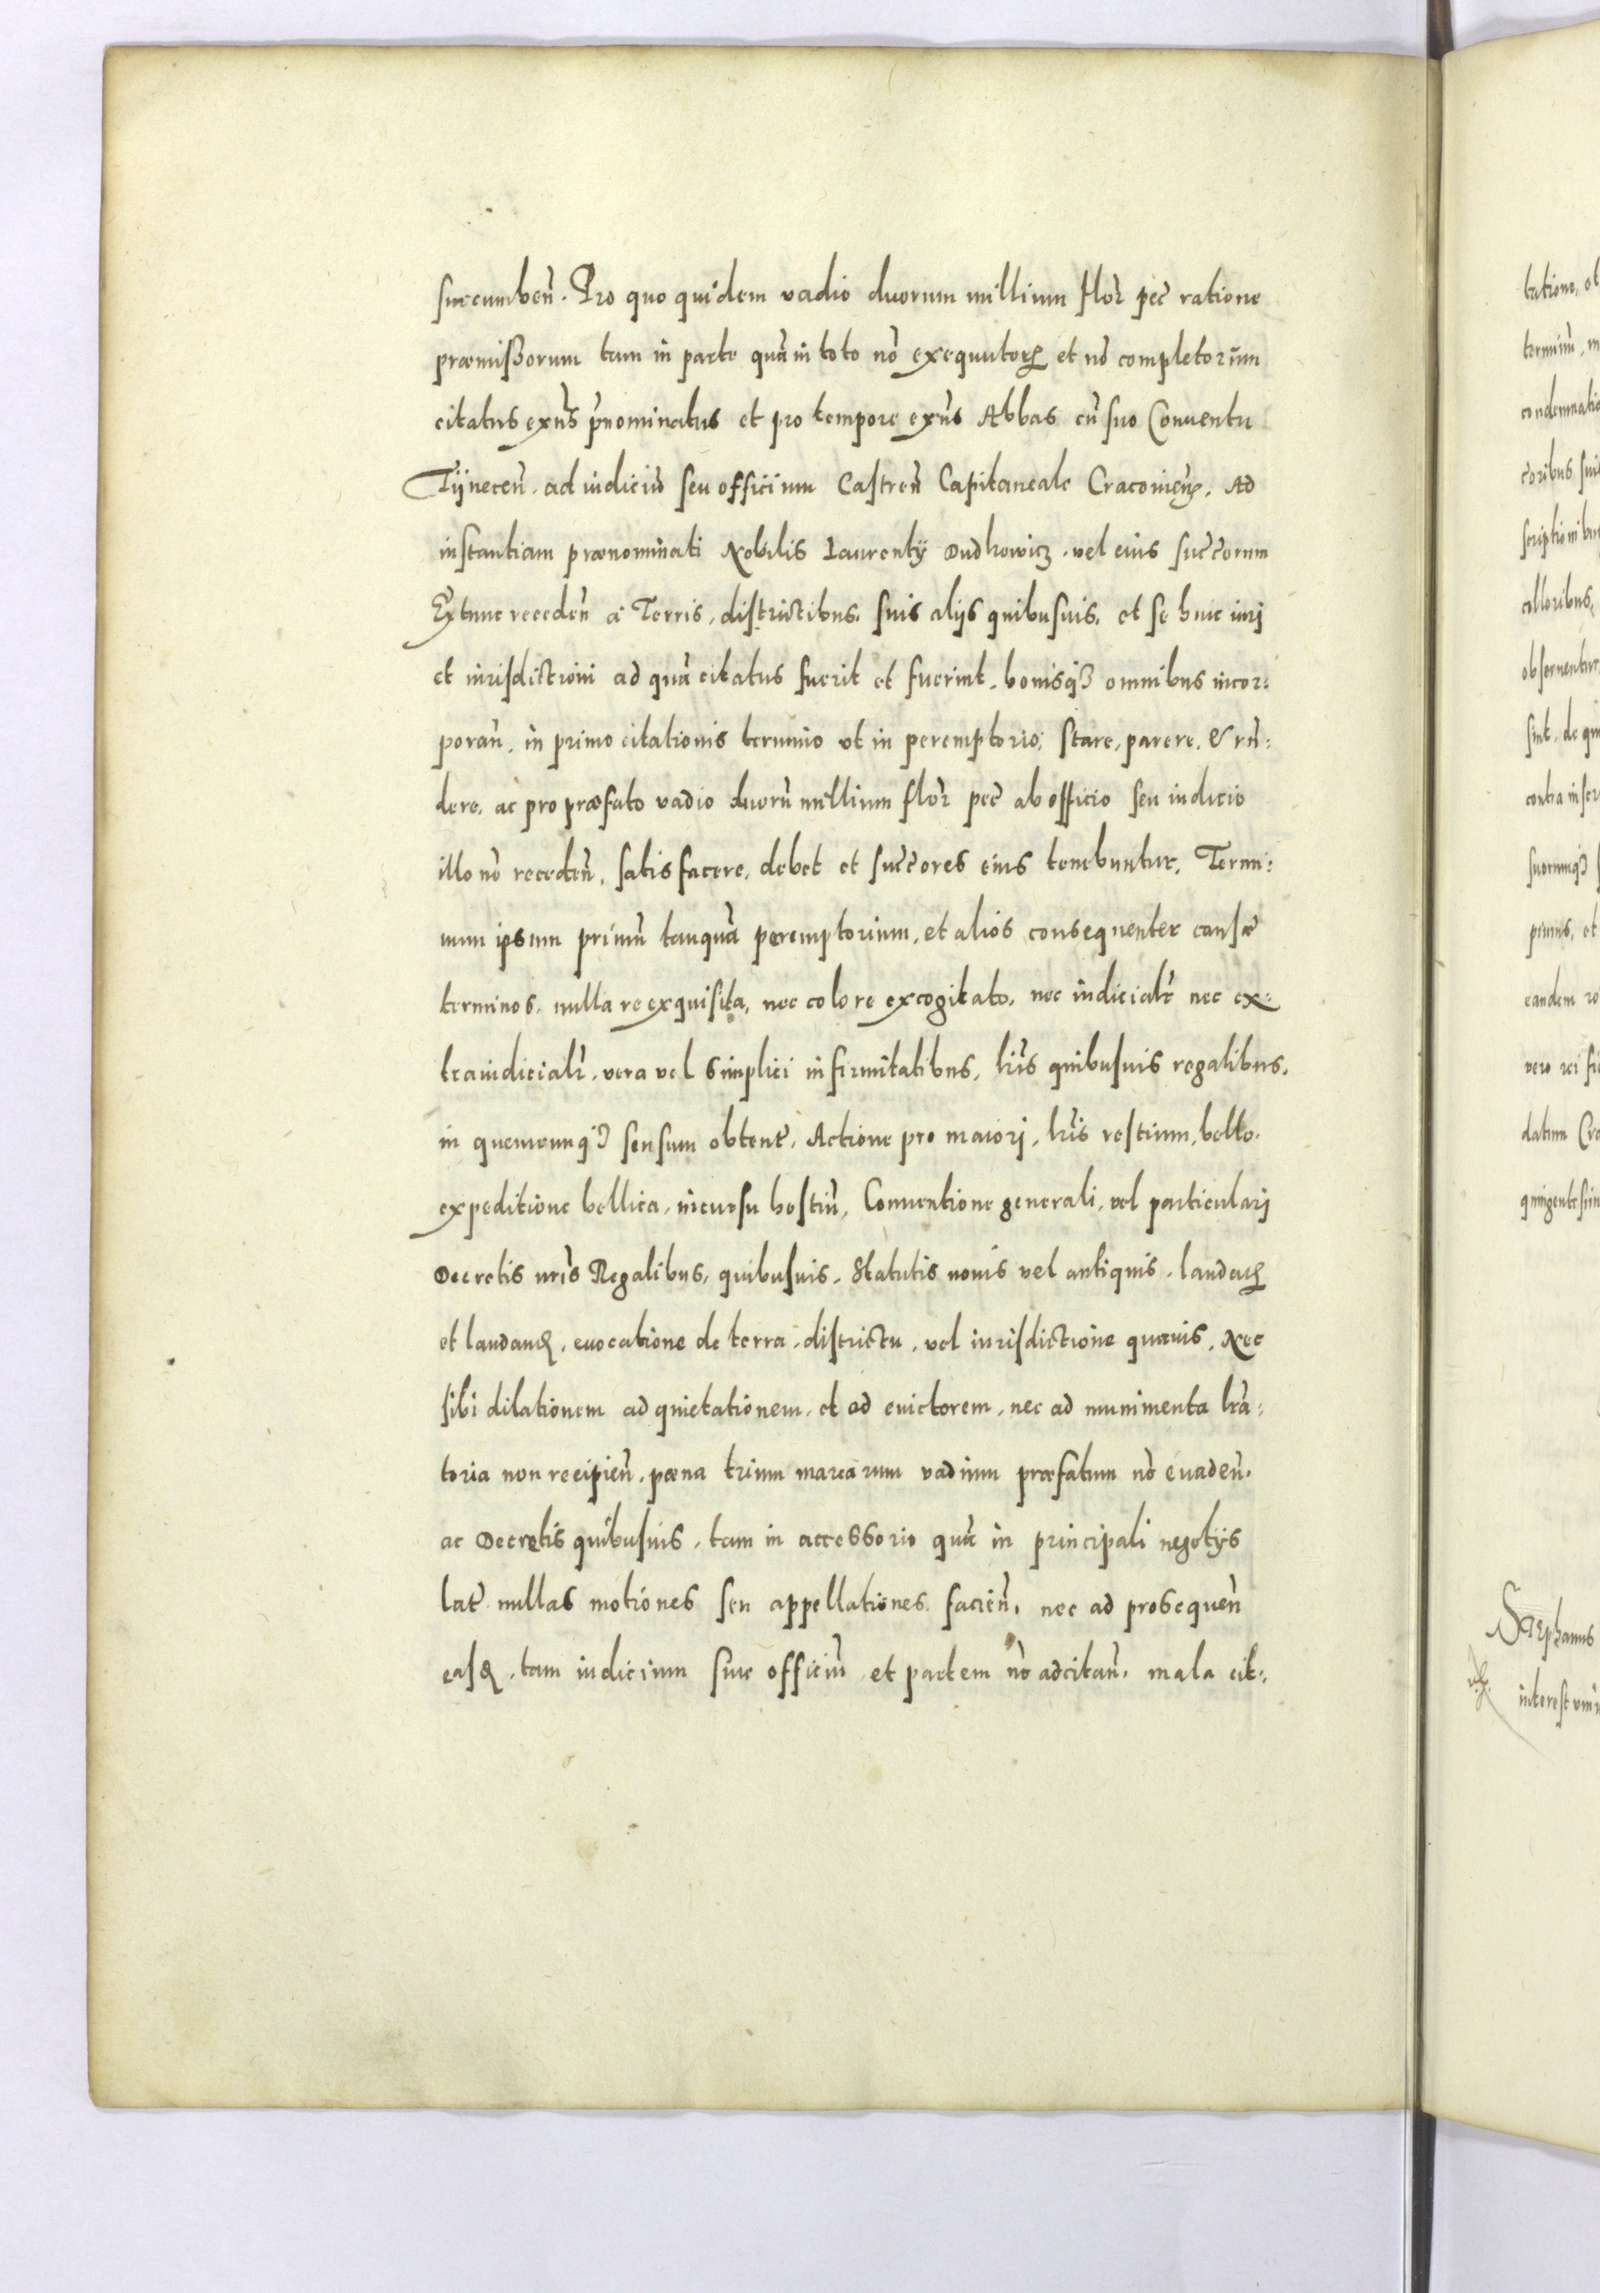 succumben̄. Pro quo quidem vadio duorum millium flor̄ pec̄ ratione
præmissorum tam in parte quā in toto nō exequutorꝝ et nō completorūm
citatus exn̄s p̄nominatus et pro tempore exn̄s Abbas cū suo Conuentu
Tÿnecen̄. ad iudiciū seu officium Castren̄ Capitaneale Cracouieñ. Ad
instantiam prænominati Nobilis Laurentÿ Dudkowicz. vel eius succ̄orum
Extunc receden̄ a Terris, districtibus, suis alijs quibusuis, et se huic iurj
et iurisdictioni ad quā citatus fuerit et fuerint, bonisqȝ omnibus incor=
poran̄, in primo citationis termino vt in peremptorio, stare, parere, & rn̄=
dere, ac pro præfato vadio duorū millium flor̄ pec̄ ab officio seu iudicio
illo nō receden̄, satisfacere, debet et succ̄ores eius tenebuntur. Termi=
num ipsum primū tanquā peremptorium, et alios consequenter causæ
terminos, nulla re exquisita, nec colore excogitato, nec iudicialr̄ nec ex=
traiudicialr̄, vera vel simplici infirmitatibus, lr̄is quibusuis regalibus,
in quemcunqȝ sensum obtent̄, Actione pro maiorj, lr̄is restium, bello,
expeditione bellica, incursu hostiū, Conuentione generali, vel particularj
Decretis nr̄is Regalibus, quibusuis, Statutis nouis vel antiquis, laudatꝝ
et laudanꝝ, euocatione de terra, districtu, vel iurisdictione quauis, Nec
sibi dilationem ad quietationem, et ad euictorem, nec ad munimenta lr̄a=
toria non recipien̄, pæna trium marcarum vadium præfatum nō euaden̄,
ac Decretis quibusuis, tam in accessorio quā in principali negotÿs
lat̄ nullas motiones seu appellationes facien̄, nec ad prosequen̄
easꝝ, tam iudicium siue officiū et partem nō adcitan̄, mala cit=